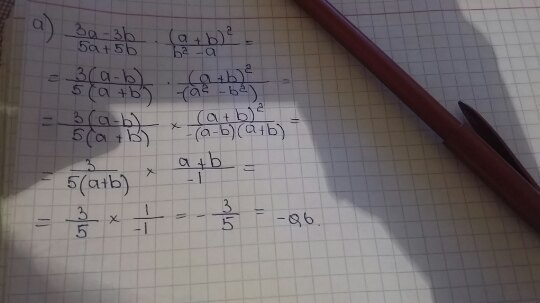 a) (3a-3b)/(5a+5b) · (a+b)²/(b²-a) =
= 3(a-b)/5(a+b) · (a+b)²/-(a²-b²) =
= 3(a-b)/5(a+b) × (a+b)²/-(a-b)(a+b) =
= 3/5(a+b) × a+b/-1 =
= 3/5 × 1/-1 = -3/5 = -0,6.